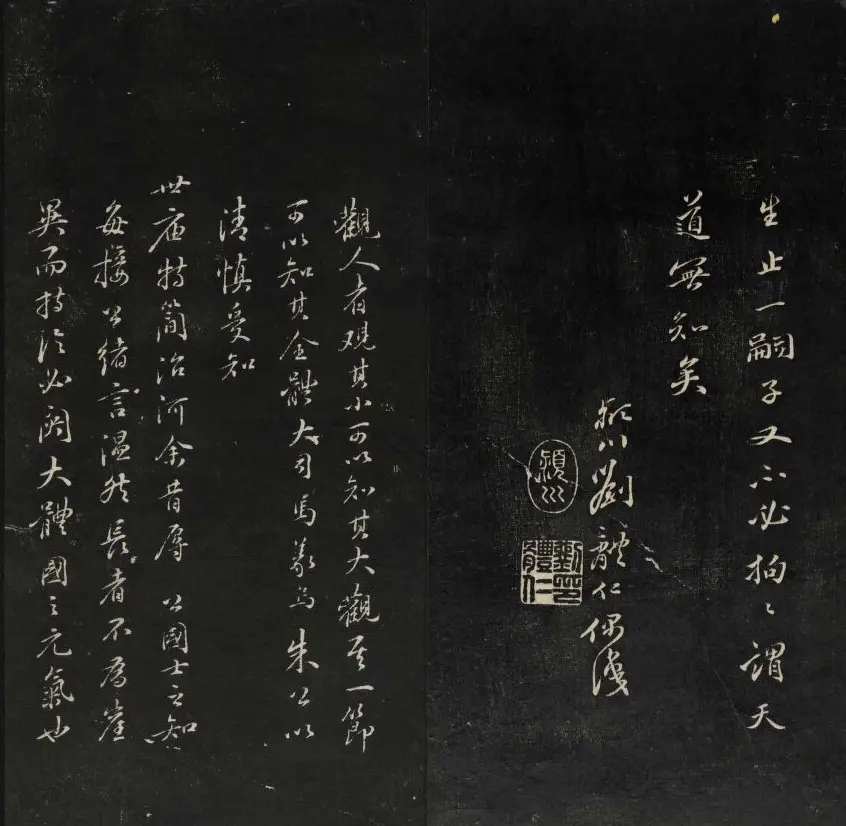 生止一嗣子又不必拘〻謂天
道無知矣
潁川劉體仁偶識
潁川
劉體仁印
觀人者观其小可以知其大觀其一節
可以知其全體大司馬義烏朱公以
清慎受知
世庙特簡治河余昔辱 公國士之知
每接公緒言温然長者不為崖
異而持论必関大體國之元氣也